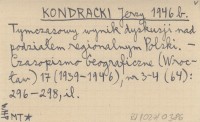 KONDRACKI Jerzy 1946 b.
Tymczasowy wynik dyskusji nad
podziałem regionalnym Polski. –
Czasopismo Geograficzne (Wroc-
ław) 17 (1939–1946), nr 3-4 (64):
296–298, il.
MT*